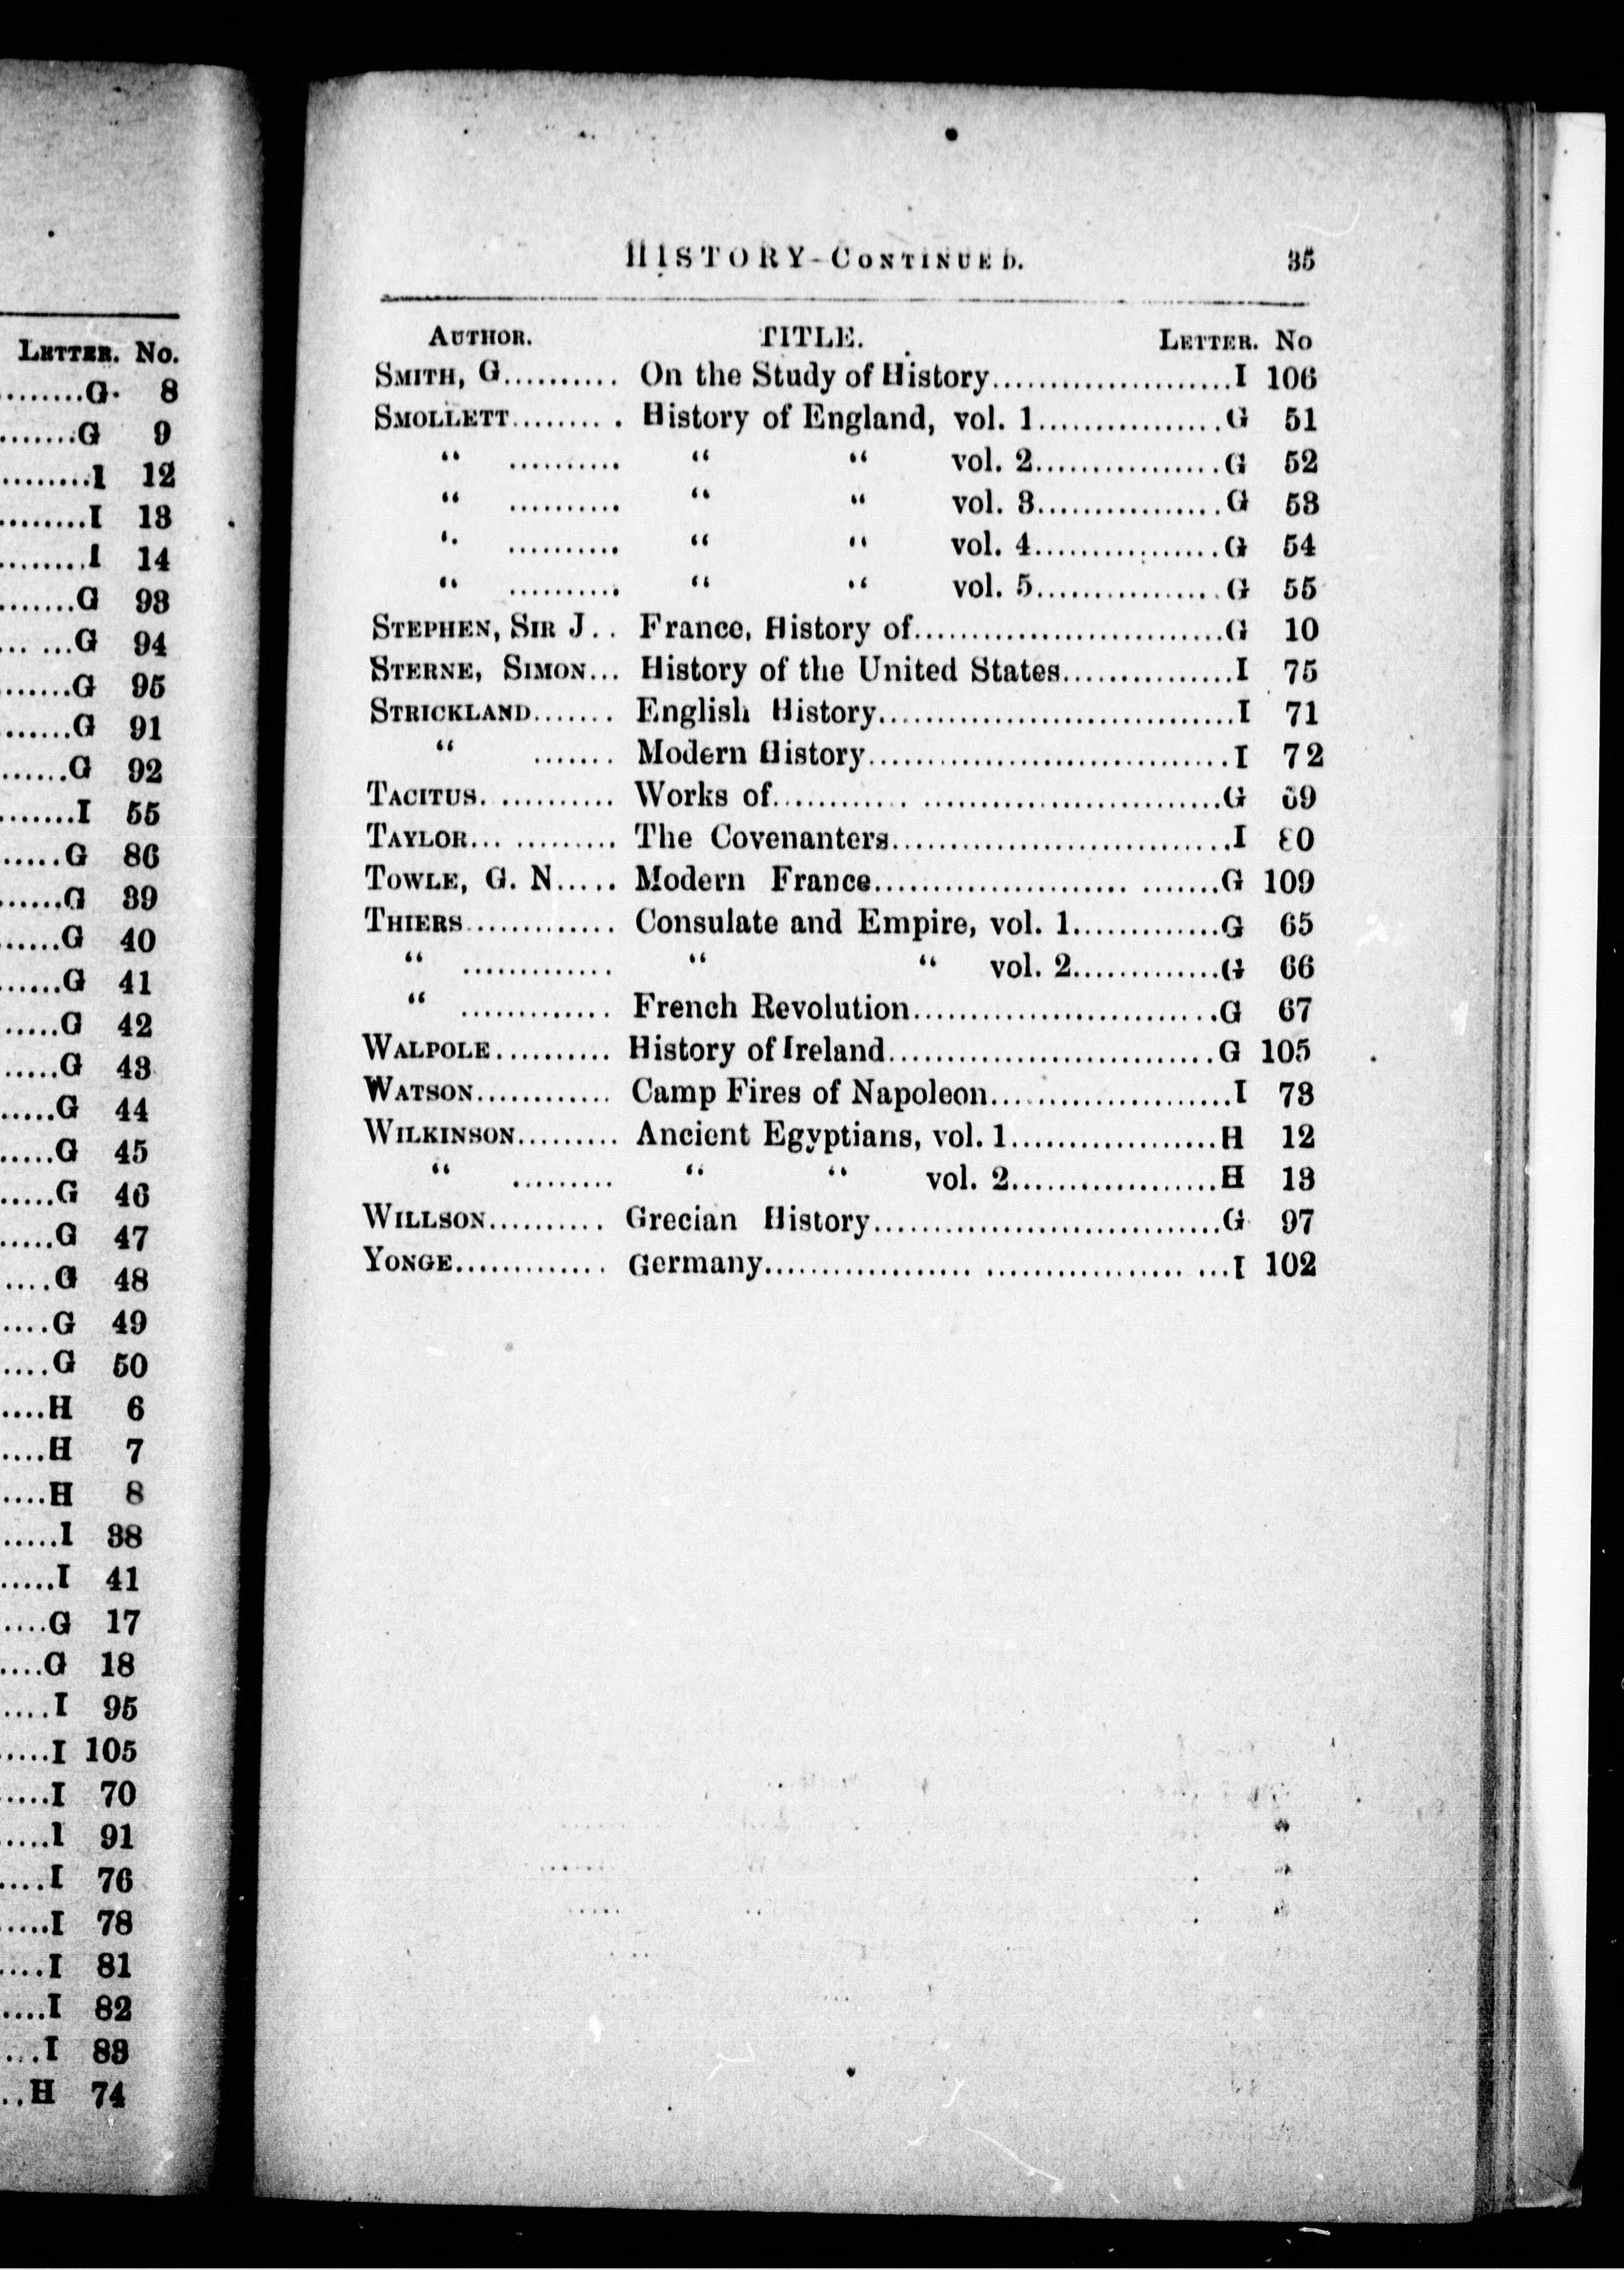 LETTER. No.
........G. 8
.......G 9
.........I 12
........I 13
........I 14
.......G 93
... ...G 94
.......G 95
.......G 91
......G 92
.......I 55
.....G 86
......G 39
......G 40
......G 41
.....G 42
.....G 43
.....G 44
.....G 45
.....G 46
.....G 47
....G 48
....G 49
....G 50
....H 6
....H 7
....H 8
.....I 38
.....I 41
....G 17
....G 18
....I 95
.....I 105
.....I 70
.....I 91
....I 76
.....I 78
....I 81
....I 82
...I 83
..H 74
HISTORY-CONTINUED. 35
AUTHOR. TITLE. LETTER. No
SMITH, G.......... On the Study of History.....................I 106
SMOLLETT......... . History of England, vol. 1................G 51
“ .......... “ “ vol. 2................G 52
“ .......... “ “ vol. 3................G 53
“ .......... “ “ vol. 4................G 54
“ .......... “ “ vol. 5................G 55
STEPHEN, SIR J.. . France, History of...........................G 10
STERNE, SIMON... History of the United States...............I 75
STRICKLAND....... English History...............................I 71
“ ....... Modern History...............................I 72
TACITUS............ Works of........... ..........................G 9
TAYLOR... ......... The Covenanters.............................I 80
TOWLE, G. N..... Modern France...................... .......G 109
THIERS............. Consulate and Empire, vol. 1.............G 65
“ ............. “ “ vol. 2.............G 66
“ ............. French Revolution..........................G 67
WALPOLE.......... History of Ireland............................G 105
WATSON............ Camp Fires of Napoleon.....................I 73
WILKINSON......... Ancient Egyptians, vol. 1..................H 12
“ ......... “ “ vol. 2..................H 13
WILLSON.......... Grecian History..............................G 97
YONGE............. Germany.................. ................. ...I 102